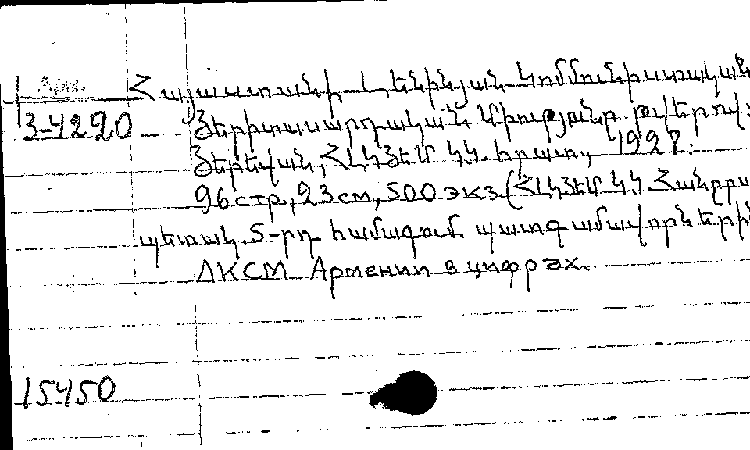 Հայաստանի Լենինյան Կոմմունիստական
3-4290 Յերիտասարդական Միությունը թվերով:
Յերեվան, ՀԼԿՅԵՄ ԿԿ հրատ., 1927:
96 стр., 23 см, 500 экз. (ՀԼԿՅԵՄ ԿԿ Հանրա
պետակ. 5-րդ համագում. պատգամավորներին
ЛКСМ Армении в цифрах.
15450